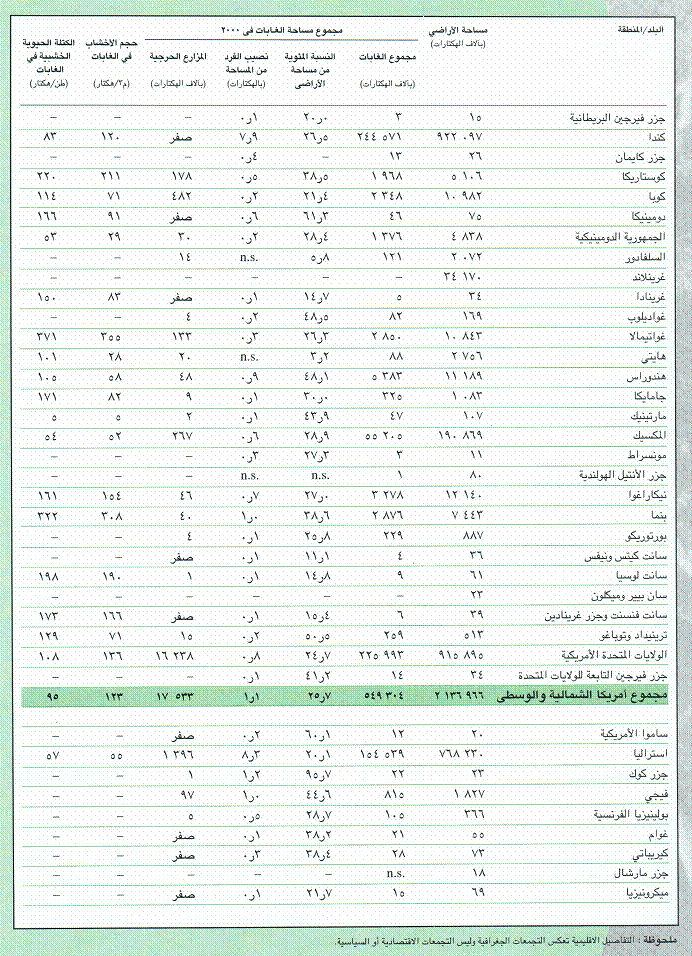 البلد/المنطقة مساحة الأراضي مجموع مساحة الغابات فى ٢٠٠٠ حجم الأخشاب في الغابات الكتلة الحيوية الخشبية في الغابات
(بالاف الهكتارات) مجموع الغابات النسبة المئوية من مساحة الأراضى نصيب الفرد من المساحة المزارع الحرجية
(بالاف الهكتارات) (بالهكتارات) (بالاف الهكتارات) (م٣/هكتار) (طن/هكتار)
جزر فيرجين البريطانية ١٥ ٣ ٢٠ر٠ ٠ر١ – – –
كندا ٩٢٢ ٠٩٧ ٢٤٤ ٥٧١ ٢٦ر٥ ٧ر٩ صفر ١٢٠ ٨٣
جزر كايمان ٢٦ ١٣ – ٠ر٤ – – –
كوستاريكا ٥ ١٠٦ ١ ٩٦٨ ٣٨ر٥ ٠ر٥ ١٧٨ ٢١١ ٢٢٠
كوبا ١٠ ٩٨٢ ٢ ٣٤٨ ٢١ر٤ ٠ر٢ ٤٨٢ ٧١ ١١٤
دومينيكا ٧٥ ٤٦ ٦١ر٣ ٠ر٦ صفر ٩١ ١٦٦
الجمهورية الدومينيكية ٤ ٨٣٨ ١ ٣٧٦ ٢٨ر٤ ٠ر٢ ٣٠ ٢٩ ٥٣
السلفادور ٢ ٠٧٢ ١٢١ ٥ر٨ n.s. ١٤ – –
غرينلاند ٣٤ ١٧٠ – – – – – –
غرينادا ٣٤ ٥ ١٤ر٧ ٠ر١ صفر ٨٣ ١٥٠
غواديلوب ١٦٩ ٨٢ ٤٨ر٥ ٠ر٢ ٤ – –
غواتيمالا ١٠ ٨٤٣ ٢ ٨٥٠ ٢٦ر٣ ٠ر٣ ١٣٣ ٣٥٥ ٣٧١
هايتى ٢ ٧٥٦ ٨٨ ٣ر٢ n.s. ٢٠ ٢٨ ١٠١
هندوراس ١١ ١٨٩ ٥ ٣٨٣ ٤٨ر١ ٠ر٩ ٤٨ ٥٨ ١٠٥
جامايكا ١ ٠٨٣ ٣٢٥ ٣٠ر٠ ٠ر١ ٩ ٨٢ ١٧١
مارتينيك ١٠٧ ٤٧ ٤٣ر٩ ٠ر١ ٢ ٥ ٥
المكسيك ١٩٠ ٨٦٩ ٥٥ ٢٠٥ ٢٨ر٩ ٠ر٦ ٢٦٧ ٥٢ ٥٤
مونسراط ١١ ٣ ٢٧ر٣ ٠ر٣ – – –
جزر الأنتيل الهولندية ٨٠ ١ n.s. n.s. – – –
نيكاراغوا ١٢ ١٤٠ ٣ ٢٧٨ ٢٧ر٠ ٠ر٧ ٤٦ ١٥٤ ١٦١
بنما ٧ ٤٤٣ ٢ ٨٧٦ ٣٨ر٦ ١ر٠ ٤٠ ٣٠٨ ٣٢٢
بورتوريكو ٨٨٧ ٢٢٩ ٢٥ر٨ ٠ر١ ٤ – –
سانت كيتس ونيفس ٣٦ ٤ ١١ر١ ٠ر١ صفر – –
سانت لوسيا ٦١ ٩ ١٤ر٨ ٠ر١ ١ ١٩٠ ١٩٨
سان بيير وميكلون ٢٣ – – – – – –
سانت فنسنت وجزر غرينادين ٣٩ ٦ ١٥ر٤ ٠ر١ صفر ١٦٦ ١٧٣
ترينيداد وتوباغو ٥١٣ ٢٥٩ ٥٠ر٥ ٠ر٢ ١٥ ٧١ ١٢٩
الولايات المتحدة الأمريكية ٩١٥ ٨٩٥ ٢٢٥ ٩٩٣ ٢٤ر٧ ٠ر٨ ١٦ ٢٣٨ ١٣٦ ١٠٨
جزر فيرجين التابعة للولايات المتحدة ٣٤ ١٤ ٤١ر٢ ٠ر١ – – –
مجموع أمريكا الشمالية والوسطى ٢ ١٣٦ ٩٦٦ ٥٤٩ ٣٠٤ ٢٥ر٧ ١ر١ ١٧ ٥٣٣ ١٢٣ ٩٥
ساموا الأمريكية ٢٠ ١٢ ٦٠ر١ ٠ر٢ صفر – –
استراليا ٧٦٨ ٢٣٠ ١٥٤ ٥٣٩ ٢٠ر١ ٨ر٣ ١ ٣٩٦ ٥٥ ٥٧
جزر كوك ٢٣ ٢٢ ٩٥ر٧ ١ر٢ ١ – –
فيجي ١ ٨٢٧ ٨١٥ ٤٤ر٦ ١ر٠ ٩٧ – –
بولينيزيا الفرنسية ٣٦٦ ١٠٥ ٢٨ر٧ ٠ر٥ ٥ – –
غوام ٥٥ ٢١ ٣٨ر٢ ٠ر١ صفر – –
كيريباتي ٧٣ ٢٨ ٣٨ر٤ ٠ر٣ صفر – –
جزر مارشال ١٨ n.s. – – – – –
ميكرونيزيا ٦٩ ١٥ ٢١ر٧ ٠ر١ صفر – –
ملحوظة : التفاصيل الاقليمية تعكس التجمعات الجغرافية وليس التجمعات الاقتصادية أو السياسية.